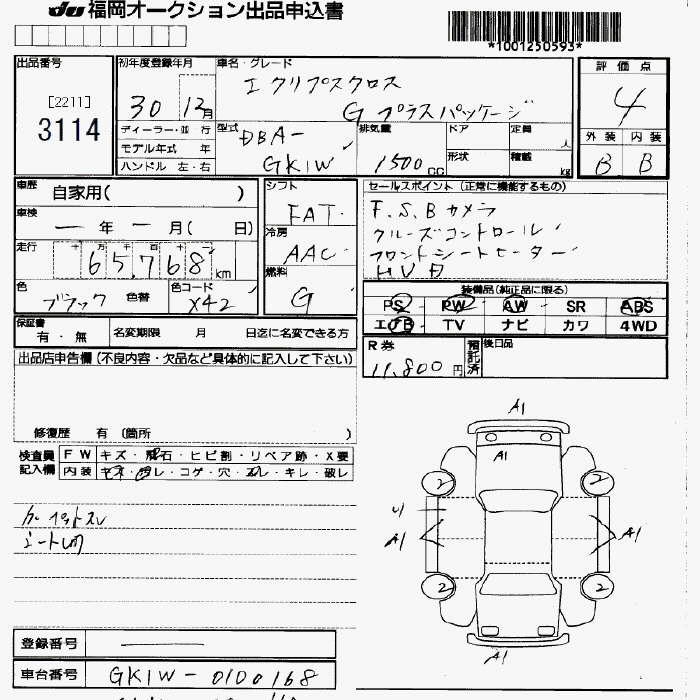 JU 福岡オークション出品申込書
*1001250593*
出品番号
[2211]
3114
初年度登録年月
30 12月
ディーラー・並行
モデル年式 年
ハンドル 左・右
車名・グレード
エクリプスクロス
G プラスパッケージ
型式
DBA-
GK1W
排気量
1500 CC
ドア
形状
定員
人
積載
kg
評価点
4
外装 内装
B B
車歴
自家用( )
車検
ー年ー月( 日)
走行
十 万 千 百 十 一
65,768 km
色
ブラック
色替
色コード
X42
シフト
FAT
冷房
AAC
燃料
G
セールスポイント(正常に機能するもの)
F.S.Bカメラ
クルーズコントロール
フロントシートヒーター
装備品(純正品に限る)
PS PW AW SR ABS
エアB TV ナビ カワ 4WD
保証書
有・無
名変期限 月 日迄に名変できる方
R券
11,800円
預託済
後日品
出品店申告欄(不良内容・欠品など具体的に記入して下さい)
修復歴 有 (箇所 )
検査員
記入欄
FW キズ・飛石・ヒビ割・リペア跡・X要
内装 キズ・汚レ・コゲ・穴・スレ・キレ・破レ
A1
A1
2 2
A1 A1
2 2
A1
登録番号
車台番号 GK1W-0100168